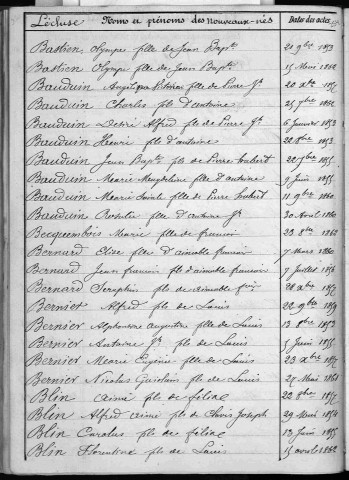 L'écluse Noms et prénoms des Nouveaux-nés Dates des actes
Bastien Olympe fille de Jean Bapte 1853
Bastien Olympe fille de Jean Bapte 15 Mai 1862
Bauduin fille de Pierre Jh 20 xbre
Bauduin Charles fils d'antoine 25 7bre
Bauduin Désiré Alfred fils de Pierre Jh 6 Janvier 1853
Bauduin Henri fils d'antoine 1853
Bauduin Jean Bapte fils de Pierre hubert 20
Bauduin Marie Magdeleine fille d'antoine 9 Juin
Bauduin Marie fille de Pierre hubert 11 9bre 1860
Bauduin Rosalie fille d'antoine Jh 30 Avril 1860
Becquembois Marie fille de francois 23 8bre 1862
Bernard Elise fille d'aimable francois 7 Mars 1860
Bernard Jean francois fils d'aimable francois 7 Juillet
Bernard Seraphin fils de aimable 28 xbre
Bernier Alfred fils de Louis 22 9bre
Bernier Alphonsine augustine fille de Louis 13 8bre
Bernier Antoine Jh fils de Louis 5 Juin
Bernier Marie Eugénie fille de Louis 23 xbre
Bernier Nicolas Guislain fils de Louis 27 Mai 1861
Blin aimé fils de
Blin Alfred aimé fils de Joseph 29 Mai 1854
Blin Carolus fils de 13 Juin
Blin Florentine fille de Louis 15 avril 1862